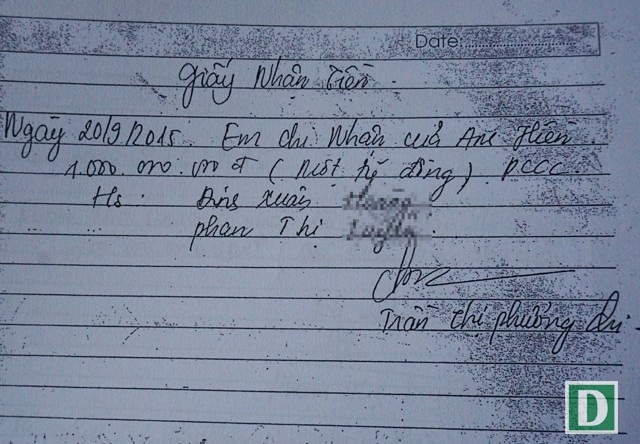 Date:
Giấy Nhận Tiền
Ngày 20/9/2015 Em chi Nhận của Anh Hiền
1.000.000.000 đ (một tỷ đồng). PCCC
Hs. Đinh Xuân
Phan Thị
Trần Thị Phương Chi
D